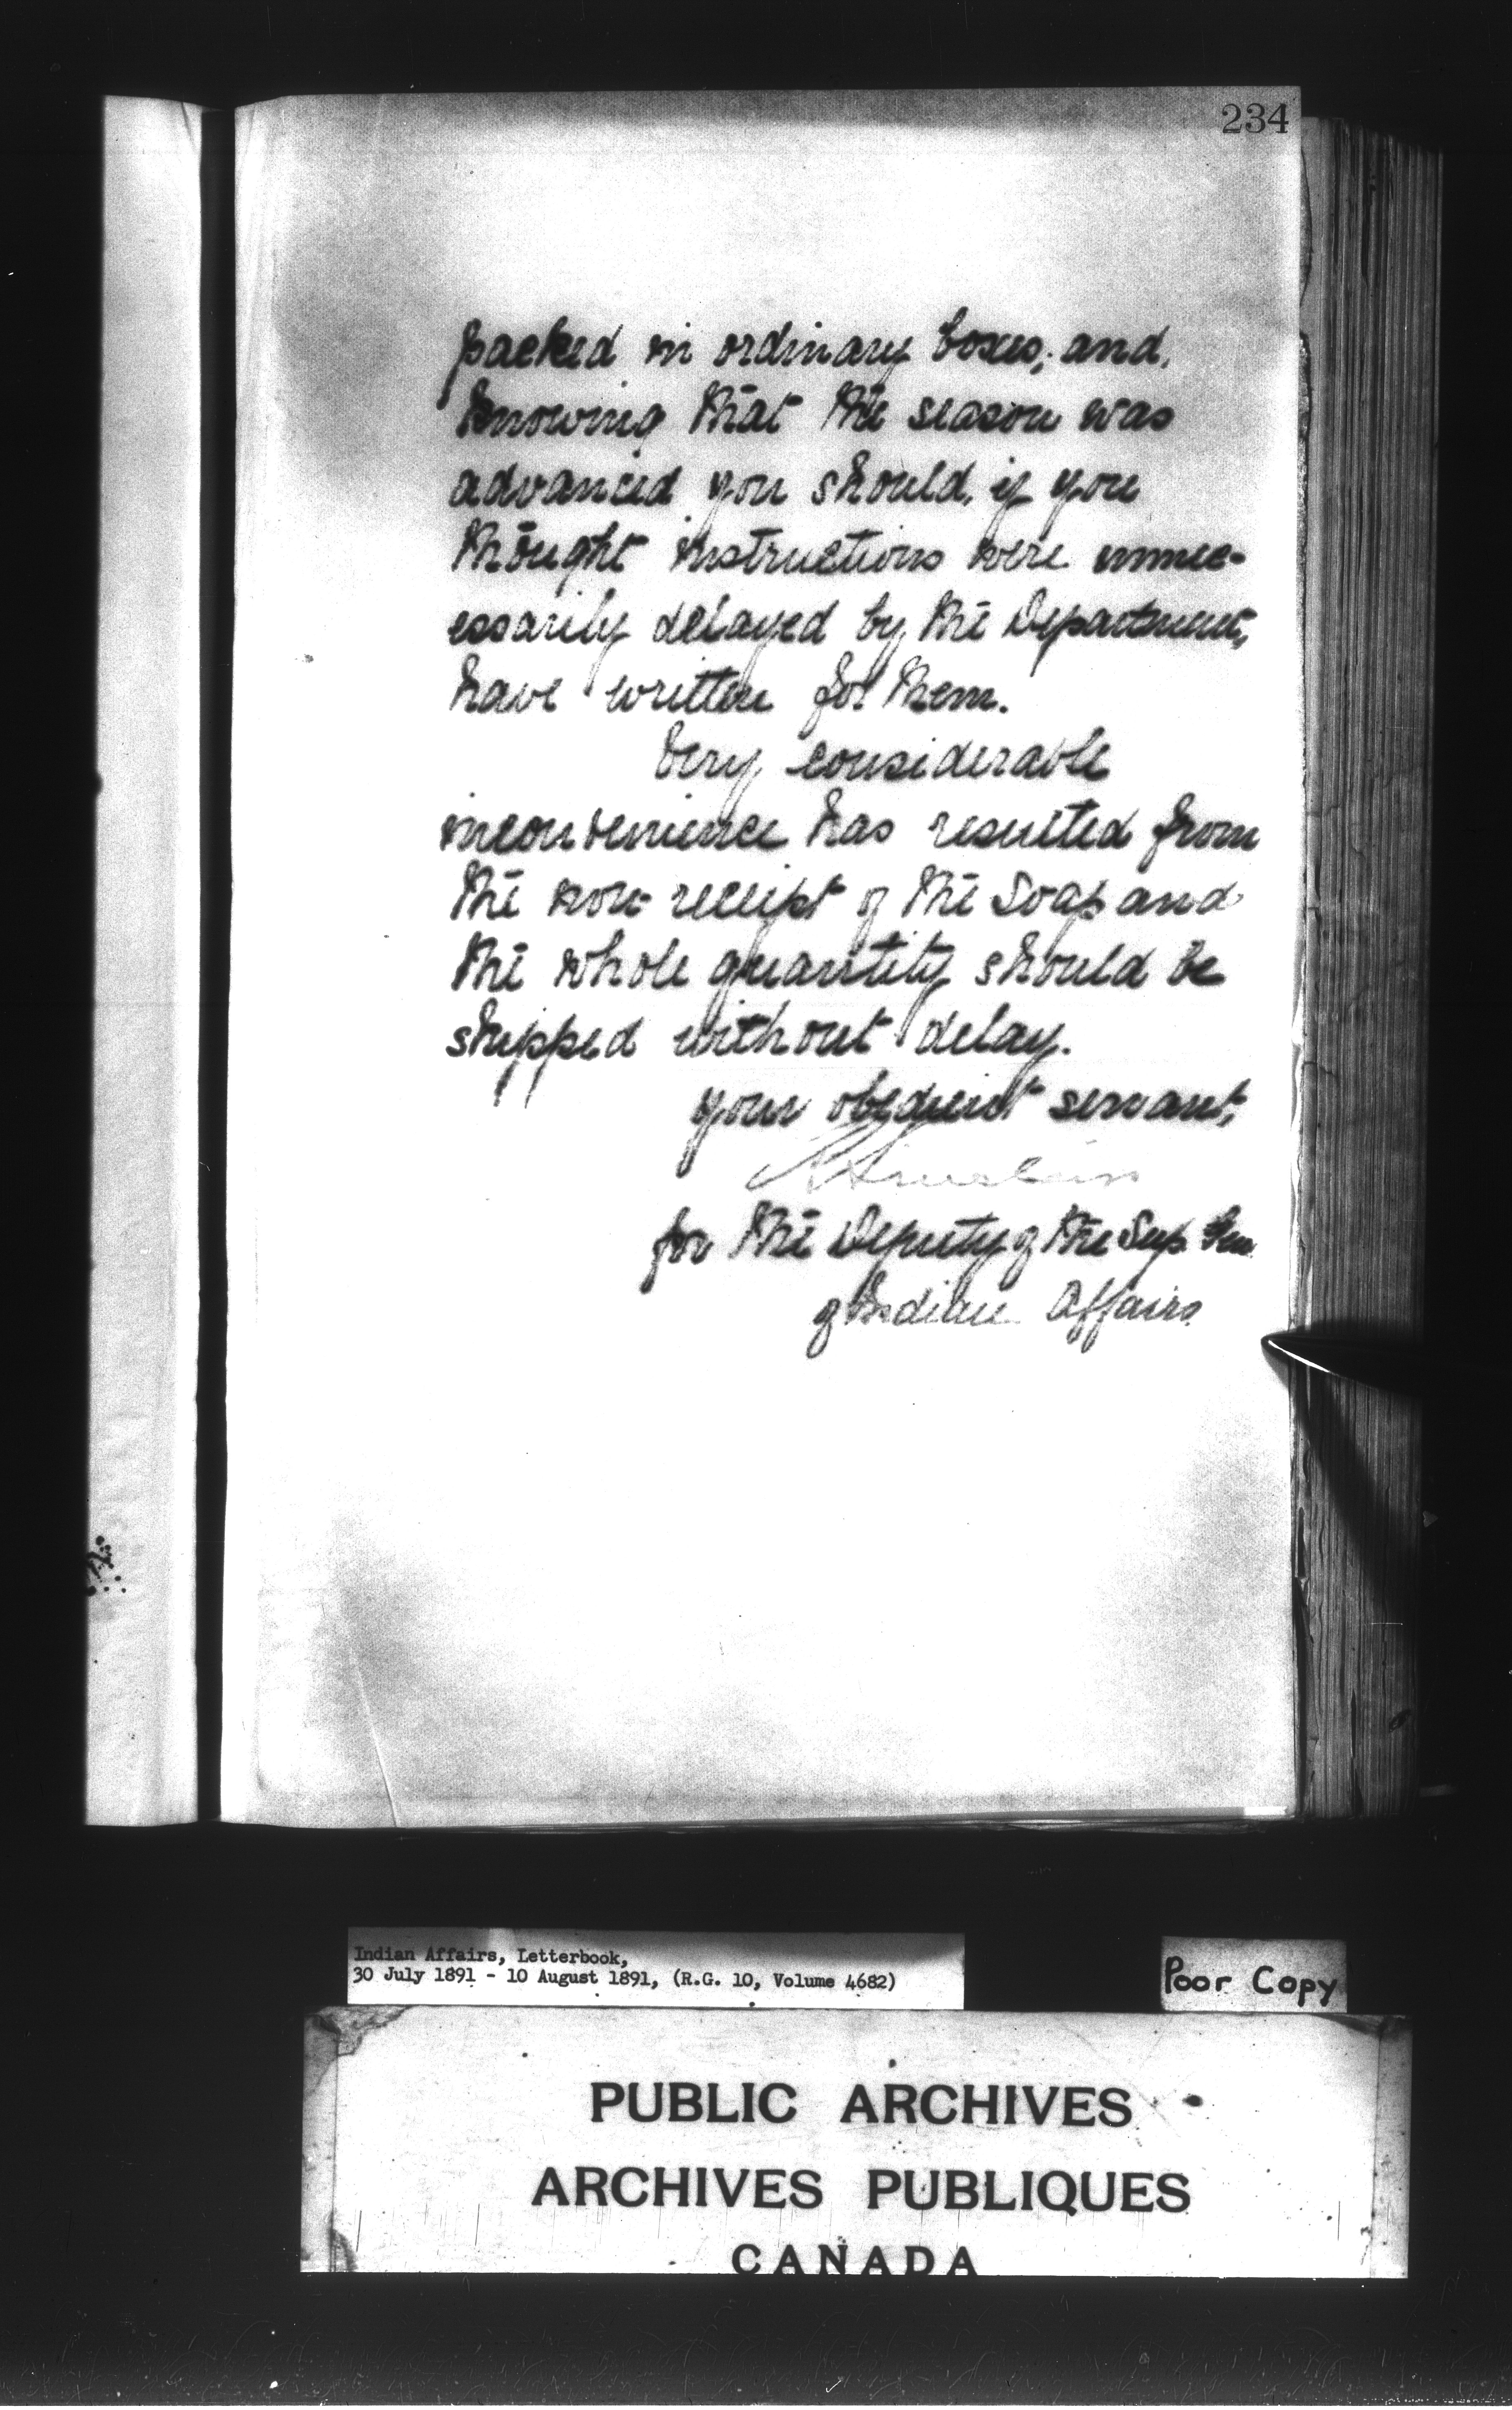 234
packed in ordinary boxes; and,
knowing that the season was
advanced you should, if you
thought instructions were unnec-
essarily delayed by the Department,
have written for them.
Very considerable
inconvenience has resulted from
the non-receipt of the Soap and
the whole quantity should be
shipped without delay.
your obedient servant,
for the Deputy of the Sup. Gen
of Indian Affairs.
Indian Affairs, Letterbook,
30 July 1891 - 10 August 1891, (R.G. 10, Volume 4682)
Poor Copy
PUBLIC ARCHIVES
ARCHIVES PUBLIQUES
CANADA